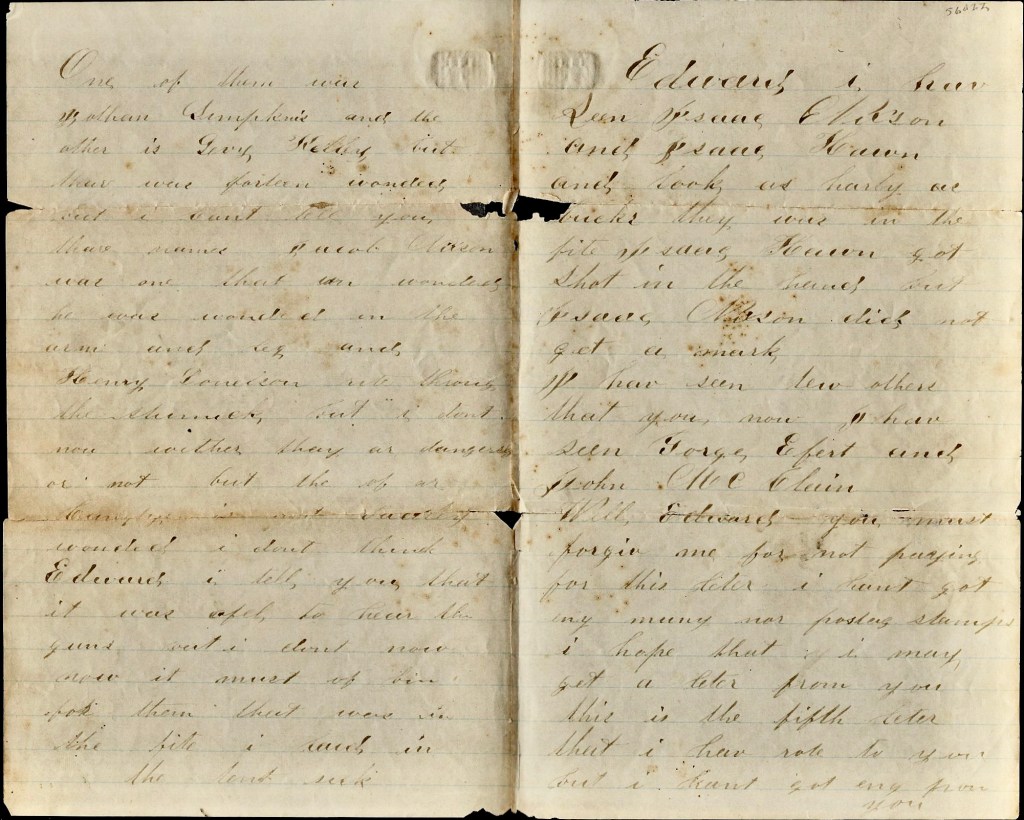 56022
One of them was
Jothan Simpkins and the
other is Gorg Kelley but
thare was forteen wonded
but i cant tell you
thare names Jacob Nixson
was one that wonded
he was wonded in the
arm and leg and
Henry Donelson rite throug
the stumick but i dont
now wether thay ar dangers
or not but the of ar
is not
wonded i dont think
Edward i tell you that
it was to hear the
guns but i dont now
how it must of bin
for them that was in
the fite i laid in
the tent sick
Edward i hav
Seen Isaac Nixson
and Isaac Hawn
and look as harty as
bucks they was in the
fite Isaac Hawn got
Shot in the hand but
Isaac Nixson did not
get a mark
I hav seen tew others
that you now I hav
seen Gorge Efert and
John Mc Clain
Well Edward you must
forgiv me for not paying
for this leter i haint got
eny muny nor postag stamps
i hope that i may
get a leter from you
this is the fifth leter
that i hav rote to you
but i haint got eny from
you